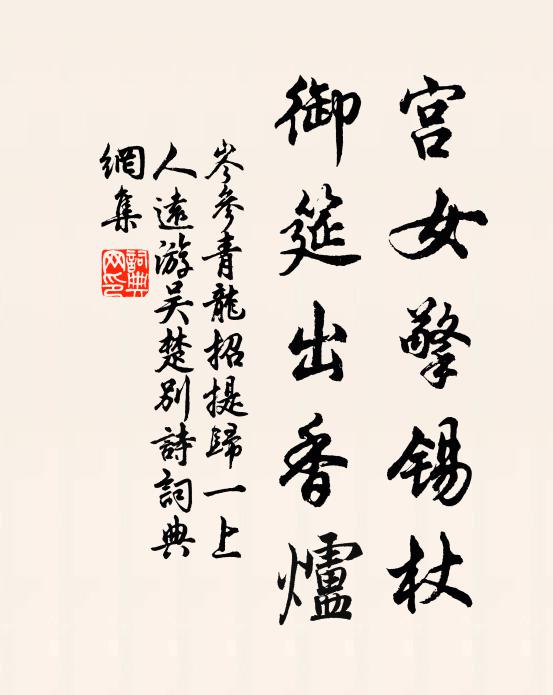 宮女擎錫杖
御筵出香爐
岑參青龍招提歸一上
人遠游吳楚別詩詞典
網集
詞典網印